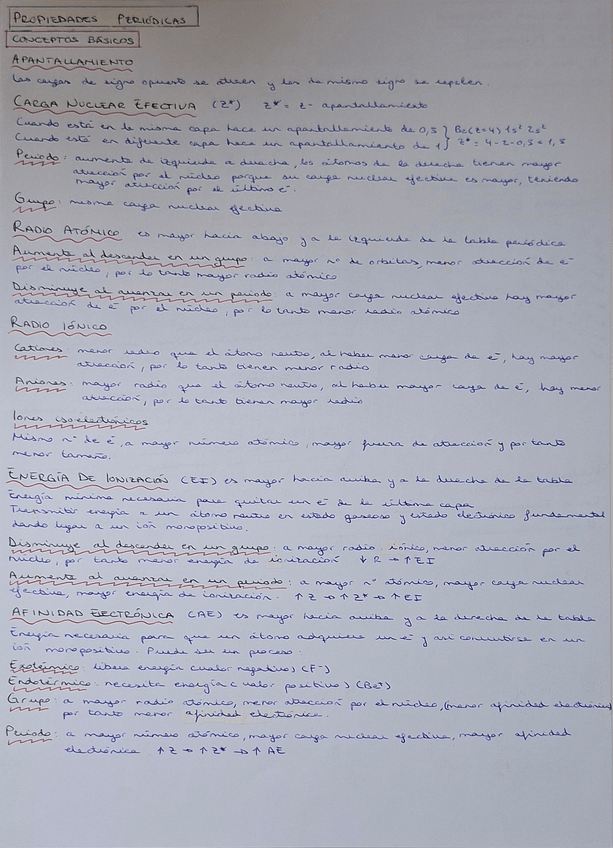 PROPIEDADES PERIÓDICAS
CONCEPTOS BÁSICOS
APANTALLAMIENTO
Las cargas de signo opuesto se atraen y las de mismo signo se repelen.
CARGA NUCLEAR EFECTIVA (Z*) Z* = Z - apantallamiento
Cuando está en la misma capa hace un apantallamiento de 0,5 } Be (Z=4) 1s² 2s²
Cuando está en diferente capa hace un apantallamiento de 1 } Z* = 4-2-0,5 = 1,5
Periodo: aumenta de izquierda a derecha, los átomos de la derecha tienen mayor
atracción por el núcleo porque su carga nuclear efectiva es mayor, teniendo
mayor atracción por el último e⁻.
Grupo: misma carga nuclear efectiva
RADIO ATÓMICO es mayor hacia abajo y a la izquierda de la tabla periódica
Aumenta al descender en un grupo: a mayor nº de orbitas, menor atracción de e⁻
por el núcleo, por lo tanto mayor radio atómico
Disminuye al avanzar en un periodo: a mayor carga nuclear efectiva hay mayor
atracción de e⁻ por el núcleo, por lo tanto menor radio atómico
RADIO IÓNICO
Cationes: menor radio que el átomo neutro, al haber menor carga de e⁻, hay mayor
atracción, por lo tanto tienen menor radio
Aniones: mayor radio que el átomo neutro, al haber mayor carga de e⁻, hay menor
atracción, por lo tanto tienen mayor radio
Iones isoelectrónicos
Mismo nº de e⁻, a mayor número atómico, mayor fuerza de atracción y por tanto
menor tamaño.
ENERGÍA DE IONIZACIÓN (EI) es mayor hacia arriba y a la derecha de la tabla
Energía mínima necesaria para quitar un e⁻ de la última capa
Transmitir energía a un átomo neutro en estado gaseoso y estado electrónico fundamental
dando lugar a un ión monopositivo.
Disminuye al descender en un grupo: a mayor radio iónico, menor atracción por el
núcleo, por tanto menor energía de ionización ↓ R → ↑ EI
Aumenta al avanzar en un periodo: a mayor nº atómico, mayor carga nuclear
efectiva, mayor energía de ionización ↑ Z → ↑ Z* → ↑ EI
AFINIDAD ELECTRÓNICA (AE) es mayor hacia arriba y a la derecha de la tabla
Energía necesaria para que un átomo adquiera un e⁻ y así convertirse en un
ión monopositivo. Puede ser un proceso:
Exotérmico: libera energía (valor negativo) (F⁻)
Endotérmico: necesita energía (valor positivo) (Be⁺)
Grupo: a mayor radio atómico, menor atracción por el núcleo, (menor afinidad electrónica)
por tanto menor afinidad electrónica.
Periodo: a mayor número atómico, mayor carga nuclear efectiva, mayor afinidad
electrónica ↑ Z → ↑ Z* → ↑ AE